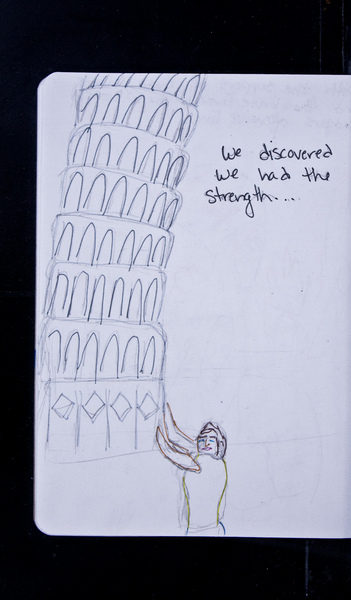 We discovered
We had the
strength....